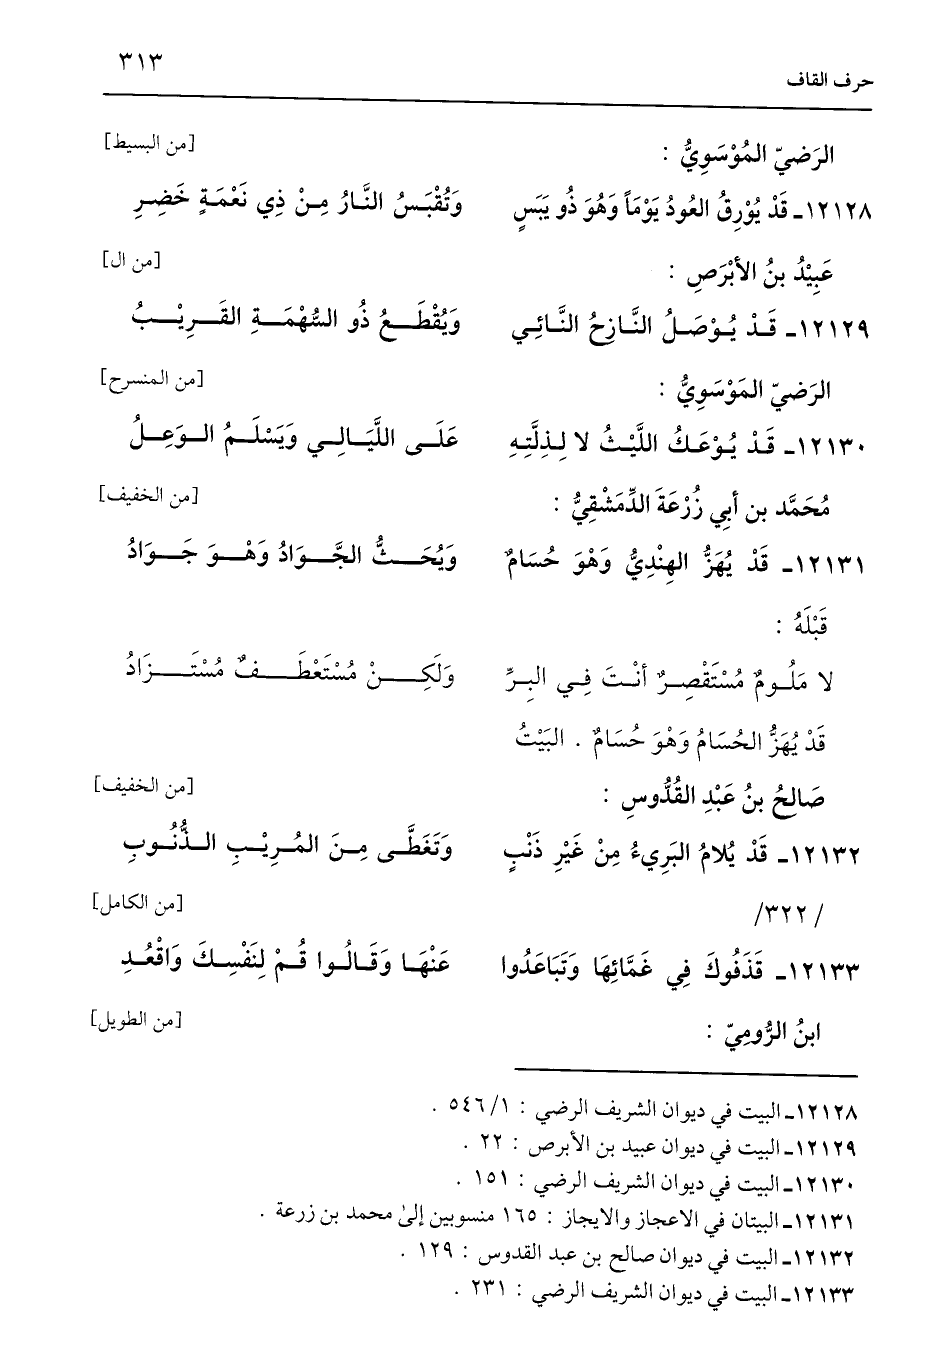 حرف القاف ٣١٣
الرَضيّ المُوْسَوِيُّ : [من البسيط]
١٢١٢٨ـ قَدْ يُوْرِقُ العُودُ يَوْمَاً وَهُوَ ذُو يَبَسٍ وَتُقْبَسُ النَّارُ مِنْ ذِي نَعْمَةٍ خَضِرِ
عَبِيْدُ بنُ الأبْرَصِ : [من ال]
١٢١٢٩ـ قَدْ يُوْصَلُ النَّازِحُ النَّائِي وَيُقْطَعُ ذُو السُّهْمَةِ القَرِيْبُ
الرَضيّ المَوْسَوِيُّ : [من المنسرح]
١٢١٣٠ـ قَدْ يُوْعَكُ اللَّيْثُ لا لِذِلَّتِهِ عَلَى اللَّيَالِي وَيَسْلَمُ الوَعِلُ
مُحَمَّد بن أبي زُرْعَةَ الدِّمَشْقِيُّ : [من الخفيف]
١٢١٣١ـ قَدْ يُهَزُّ الهِنْدِيُّ وَهْوَ حُسَامٌ وَيُحَثُّ الجَّوَادُ وَهْوَ جَوَادُ
قَبْلَهُ :
لا مَلُومٌ مُسْتَقْصِرٌ أنْتَ فِي البِرِّ وَلَكِنْ مُسْتَعْطَفٌ مُسْتَزَادُ
قَدْ يُهَزُّ الحُسَامُ وَهْوَ حُسَامٌ . البَيْتُ
صَالحُ بنُ عَبْدِ القُدُّوسِ : [من الخفيف]
١٢١٣٢ـ قَدْ يُلامُ البَرِيءُ مِنْ غَيْرِ ذَنْبٍ وَتَغَطَّى مِنَ المُرِيْبِ الذُّنُوبِ
/ ٣٢٢/ [من الكامل]
١٢١٣٣ـ قَذَفُوكَ فِي غَمَّائِهَا وَتَبَاعَدُوا عَنْهَا وَقَالُوا قُمْ لِنَفْسِكَ وَاقْعُدِ
ابنُ الرُّومِيّ : [من الطويل]
١٢١٢٨ـ البيت في ديوان الشريف الرضي : ١/ ٥٤٦ .
١٢١٢٩ـ البيت في ديوان عبيد بن الأبرص : ٢٢ .
١٢١٣٠ـ البيت في ديوان الشريف الرضي : ١٥١ .
١٢١٣١ـ البيتان في الاعجاز والايجاز : ١٦٥ منسوبين إلىٰ محمد بن زرعة .
١٢١٣٢ـ البيت في ديوان صالح بن عبد القدوس : ١٢٩ .
١٢١٣٣ـ البيت في ديوان الشريف الرضي : ٢٣١ .